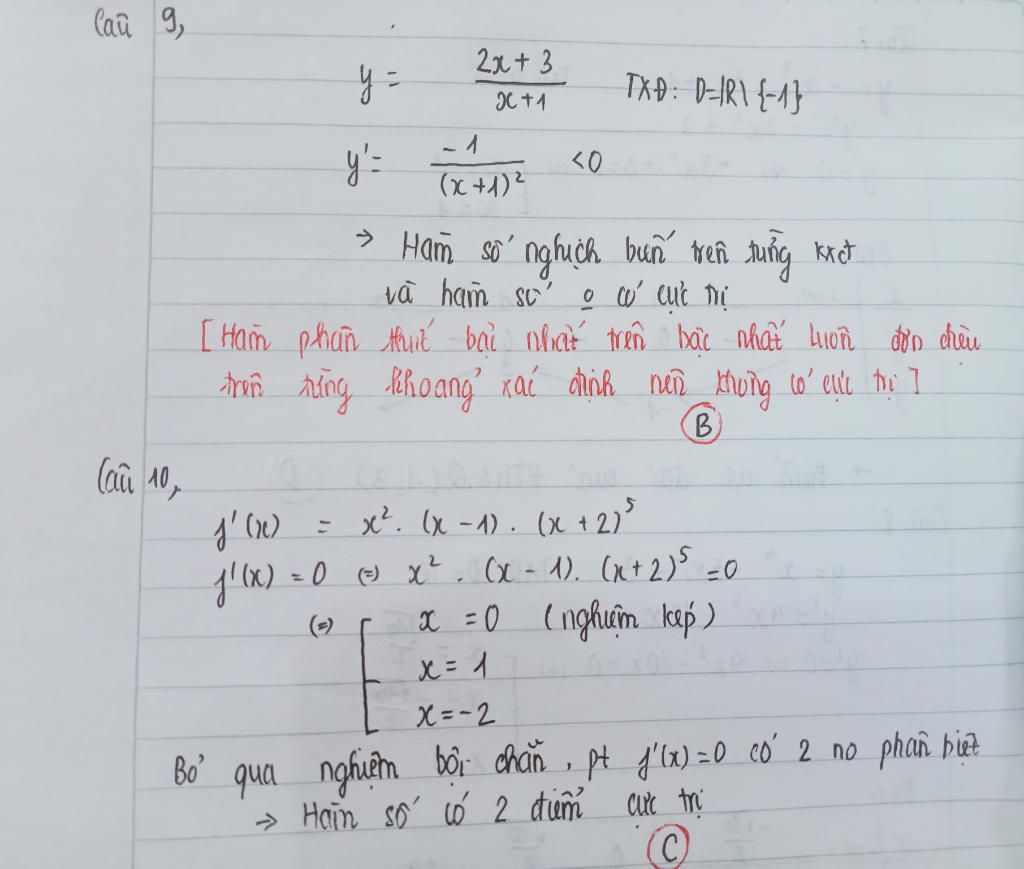 Câu 9,
y = \frac{2x+3}{x+1} TXĐ: D=|R\ {-1}
y' = \frac{-1}{(x+1)^2} <0
→ Hàm số nghịch biến trên từng kxđ
và hàm số o có cực trị
[Hàm phân thức bậc nhất trên bậc nhất luôn đơn điệu
trên từng khoảng xác định nên không có cực trị]
B
Câu 10,
f'(x) = x². (x-1). (x+2)⁵
f'(x) = 0 (=) x² . (x-1). (x+2)⁵ =0
(=) [ x = 0 (nghiệm kép)
x = 1
x = -2
Bỏ qua nghiệm bội chẵn, pt f'(x)=0 có 2 no phân biệt
→ Hàm số có 2 điểm cực trị
C